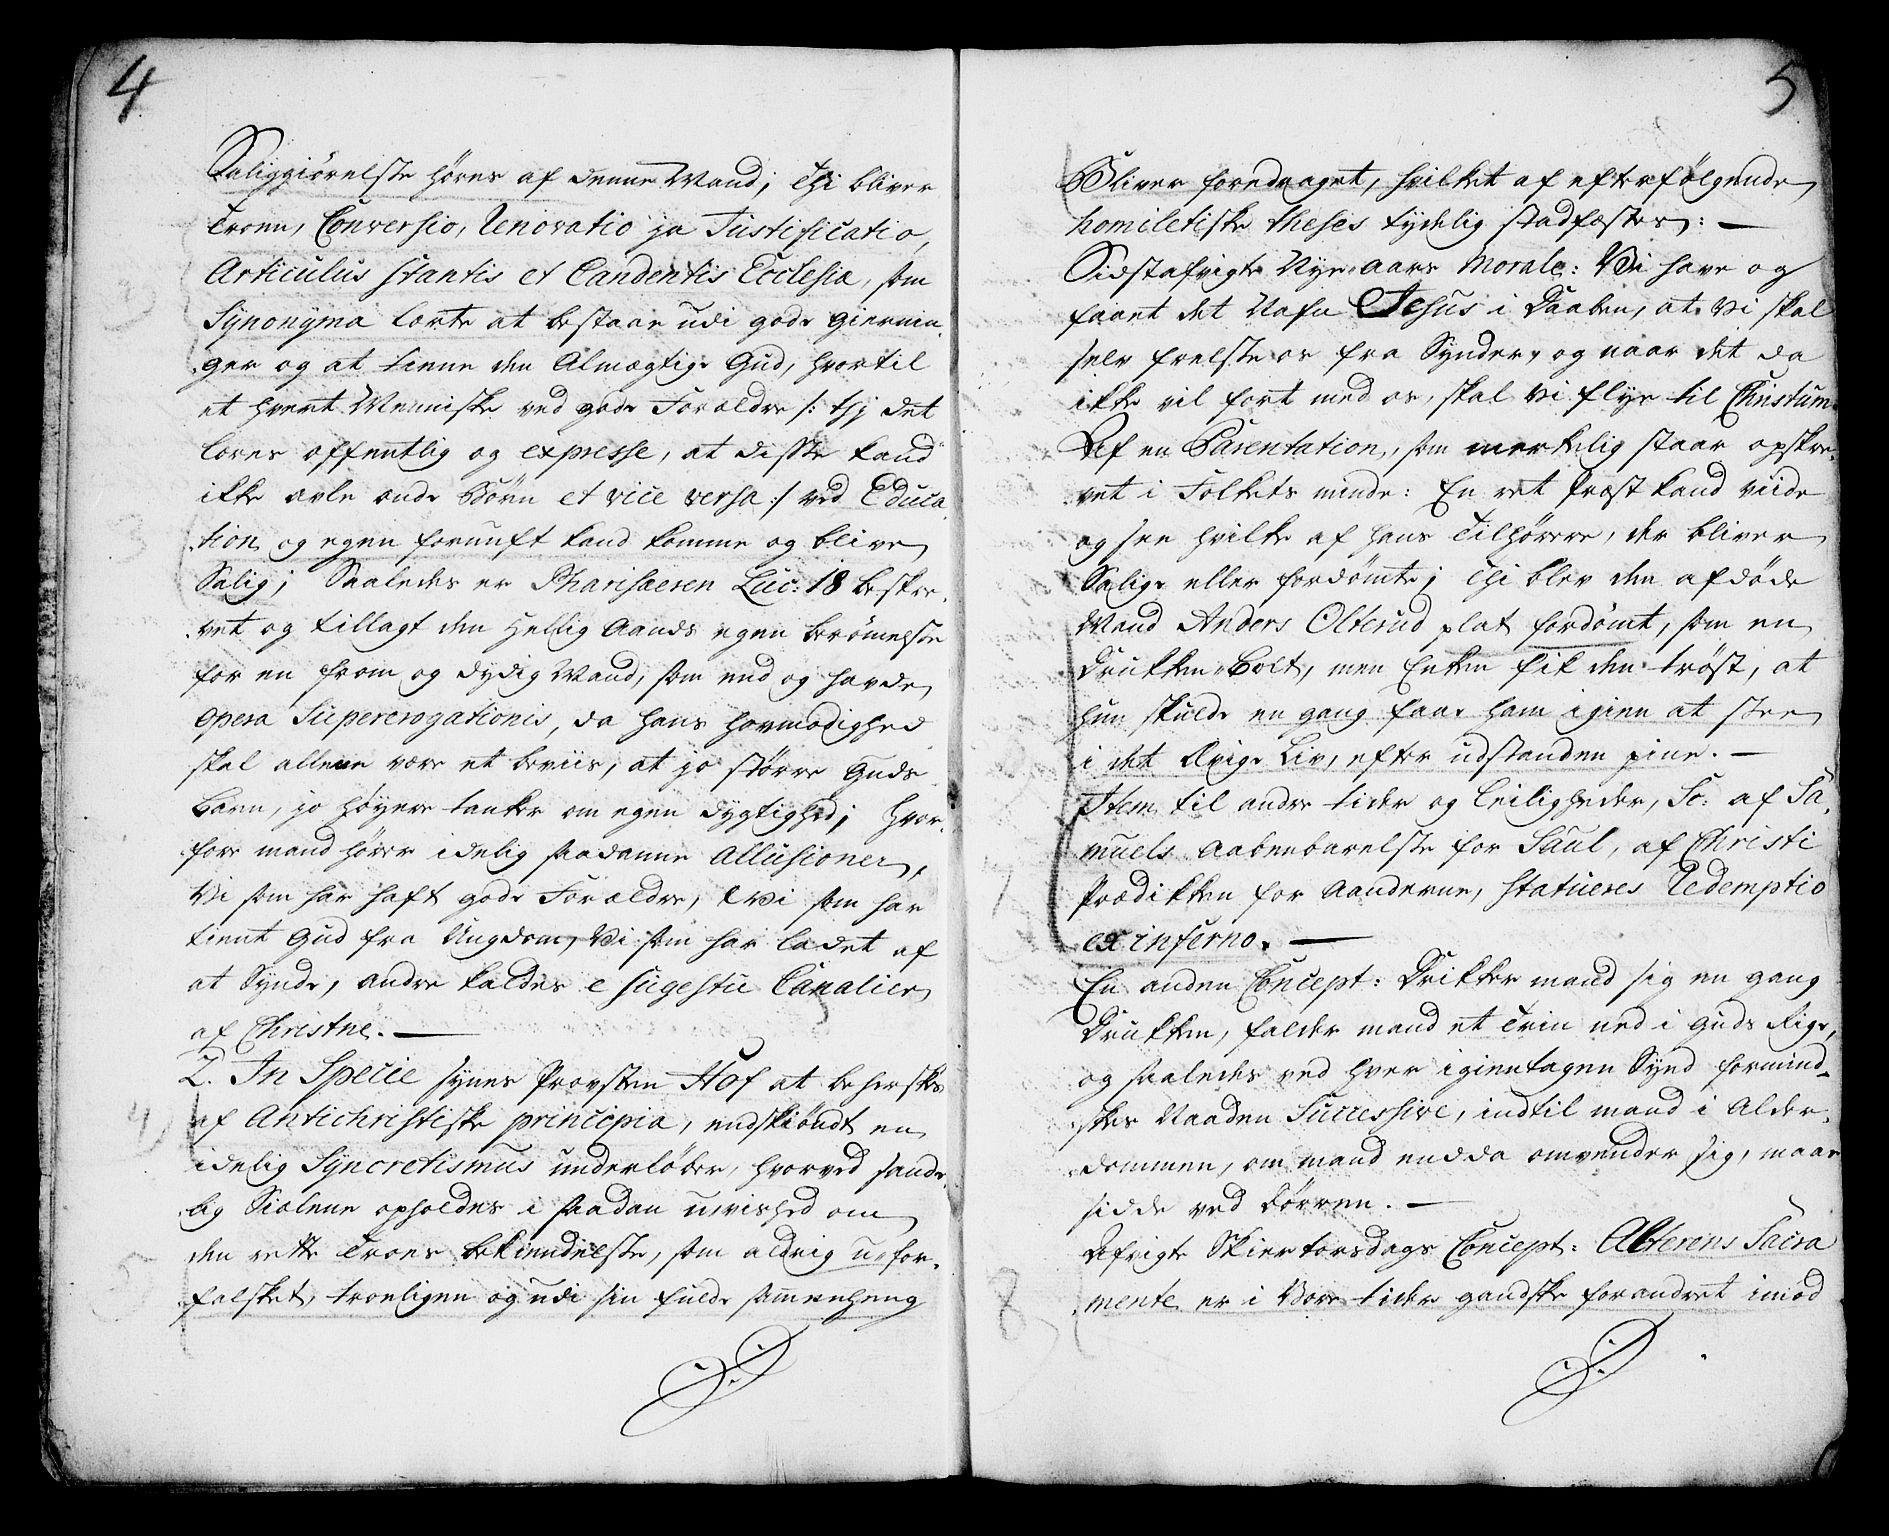 4
Saliggiörelse höres af denne Mand; Thi bliver
Troen, Conversio, Renovatio ja Justificatio,
Articulus stantis et Candentis Ecclesia, som
Synonÿma lærte at bestaae udi gode Gierninger
ger og at tiene den Almægtige Gud, hvortil
et hvert Menniske ved gode Forældre /: thj det
læres offentlig og expresse, at disse kand
ikke avle onde Börn et vice versa :/ ved Educa
tion og egen fornuft kand komme og blive
Salig; Saaledes er Pharisæeren Luc: 18 beskre,
vet og tillagt den Hellig Aands egen berömelse
for en from og dydig Mand, som end og havde
opera Supererogationis, da hans hovmodighed
skal allene være et beviis, at jo större Guds
Barn, jo höyere tanker om egen dygtighed; Hvor,
fore mand hörer idelig saadanne Allusioner,
Vi som har haft gode Forældre, Vi som har
tient Gud fra Ungdom, Vi som har ladet af
at Synde, andre kaldes e sugestu Canalier
af Christne. —
2. In Specie synes Provsten Hof at beherskes
af Antichristiske principia, endskiöndt en
idelig Syncretismus underlöber, hvorved sande,
lig Siælene opholdes i saadan uvished om
den rette Troes bekiendelse, som aldrig u-for,
falsket, troeligen og udi sin fulde sammenheng
5
Bliver foredraget, hvilket af efterfölgende
homiletiske theses tydelig stadfæstes: —
Sidstafvigte Nye-aars Morale: Vi have og
faaet det Nafn Jesus i Daaben, at vi skal
selv frelse os fra Synder, og naar det da
ikke vil fort med os, skal vi flye til Christum.
Af en Parentation, som merkelig staar opskre,
vet i Folkets minde: En ret Præst kand viide
og see hvilke af hans Tilhörere, der bliver
Salige eller fordömte; Thi blev den afdöde
Mand Anders Olterud plat fordömt, som en
Drukken-Bolt, men Enken fik den tröst, at
hun skulde en gang faae ham igien at see
i det Evige Liv, efter udstanden pine. —
Item til andre tider og leiligheder, Sc: af Sa,
muels aabenbarelse for Saul, af Christi
Prædikken for Aanderne, statueres Redemptio
ex inferno. —
En anden Concept: Drikker mand sig en gang
Drukken, falder mand et Trin ned i Guds Rige,
og saaledes ved hver igientagen Synd formind,
skes Naaden Successive, indtil mand i Alder,
dommen, om mand endda omvender sig, maae
sidde ved Dörren. —
Afvigte Skiertorsdags Concept: Alterens Sacra
mente er i Vore tider gandske forandret imod
8